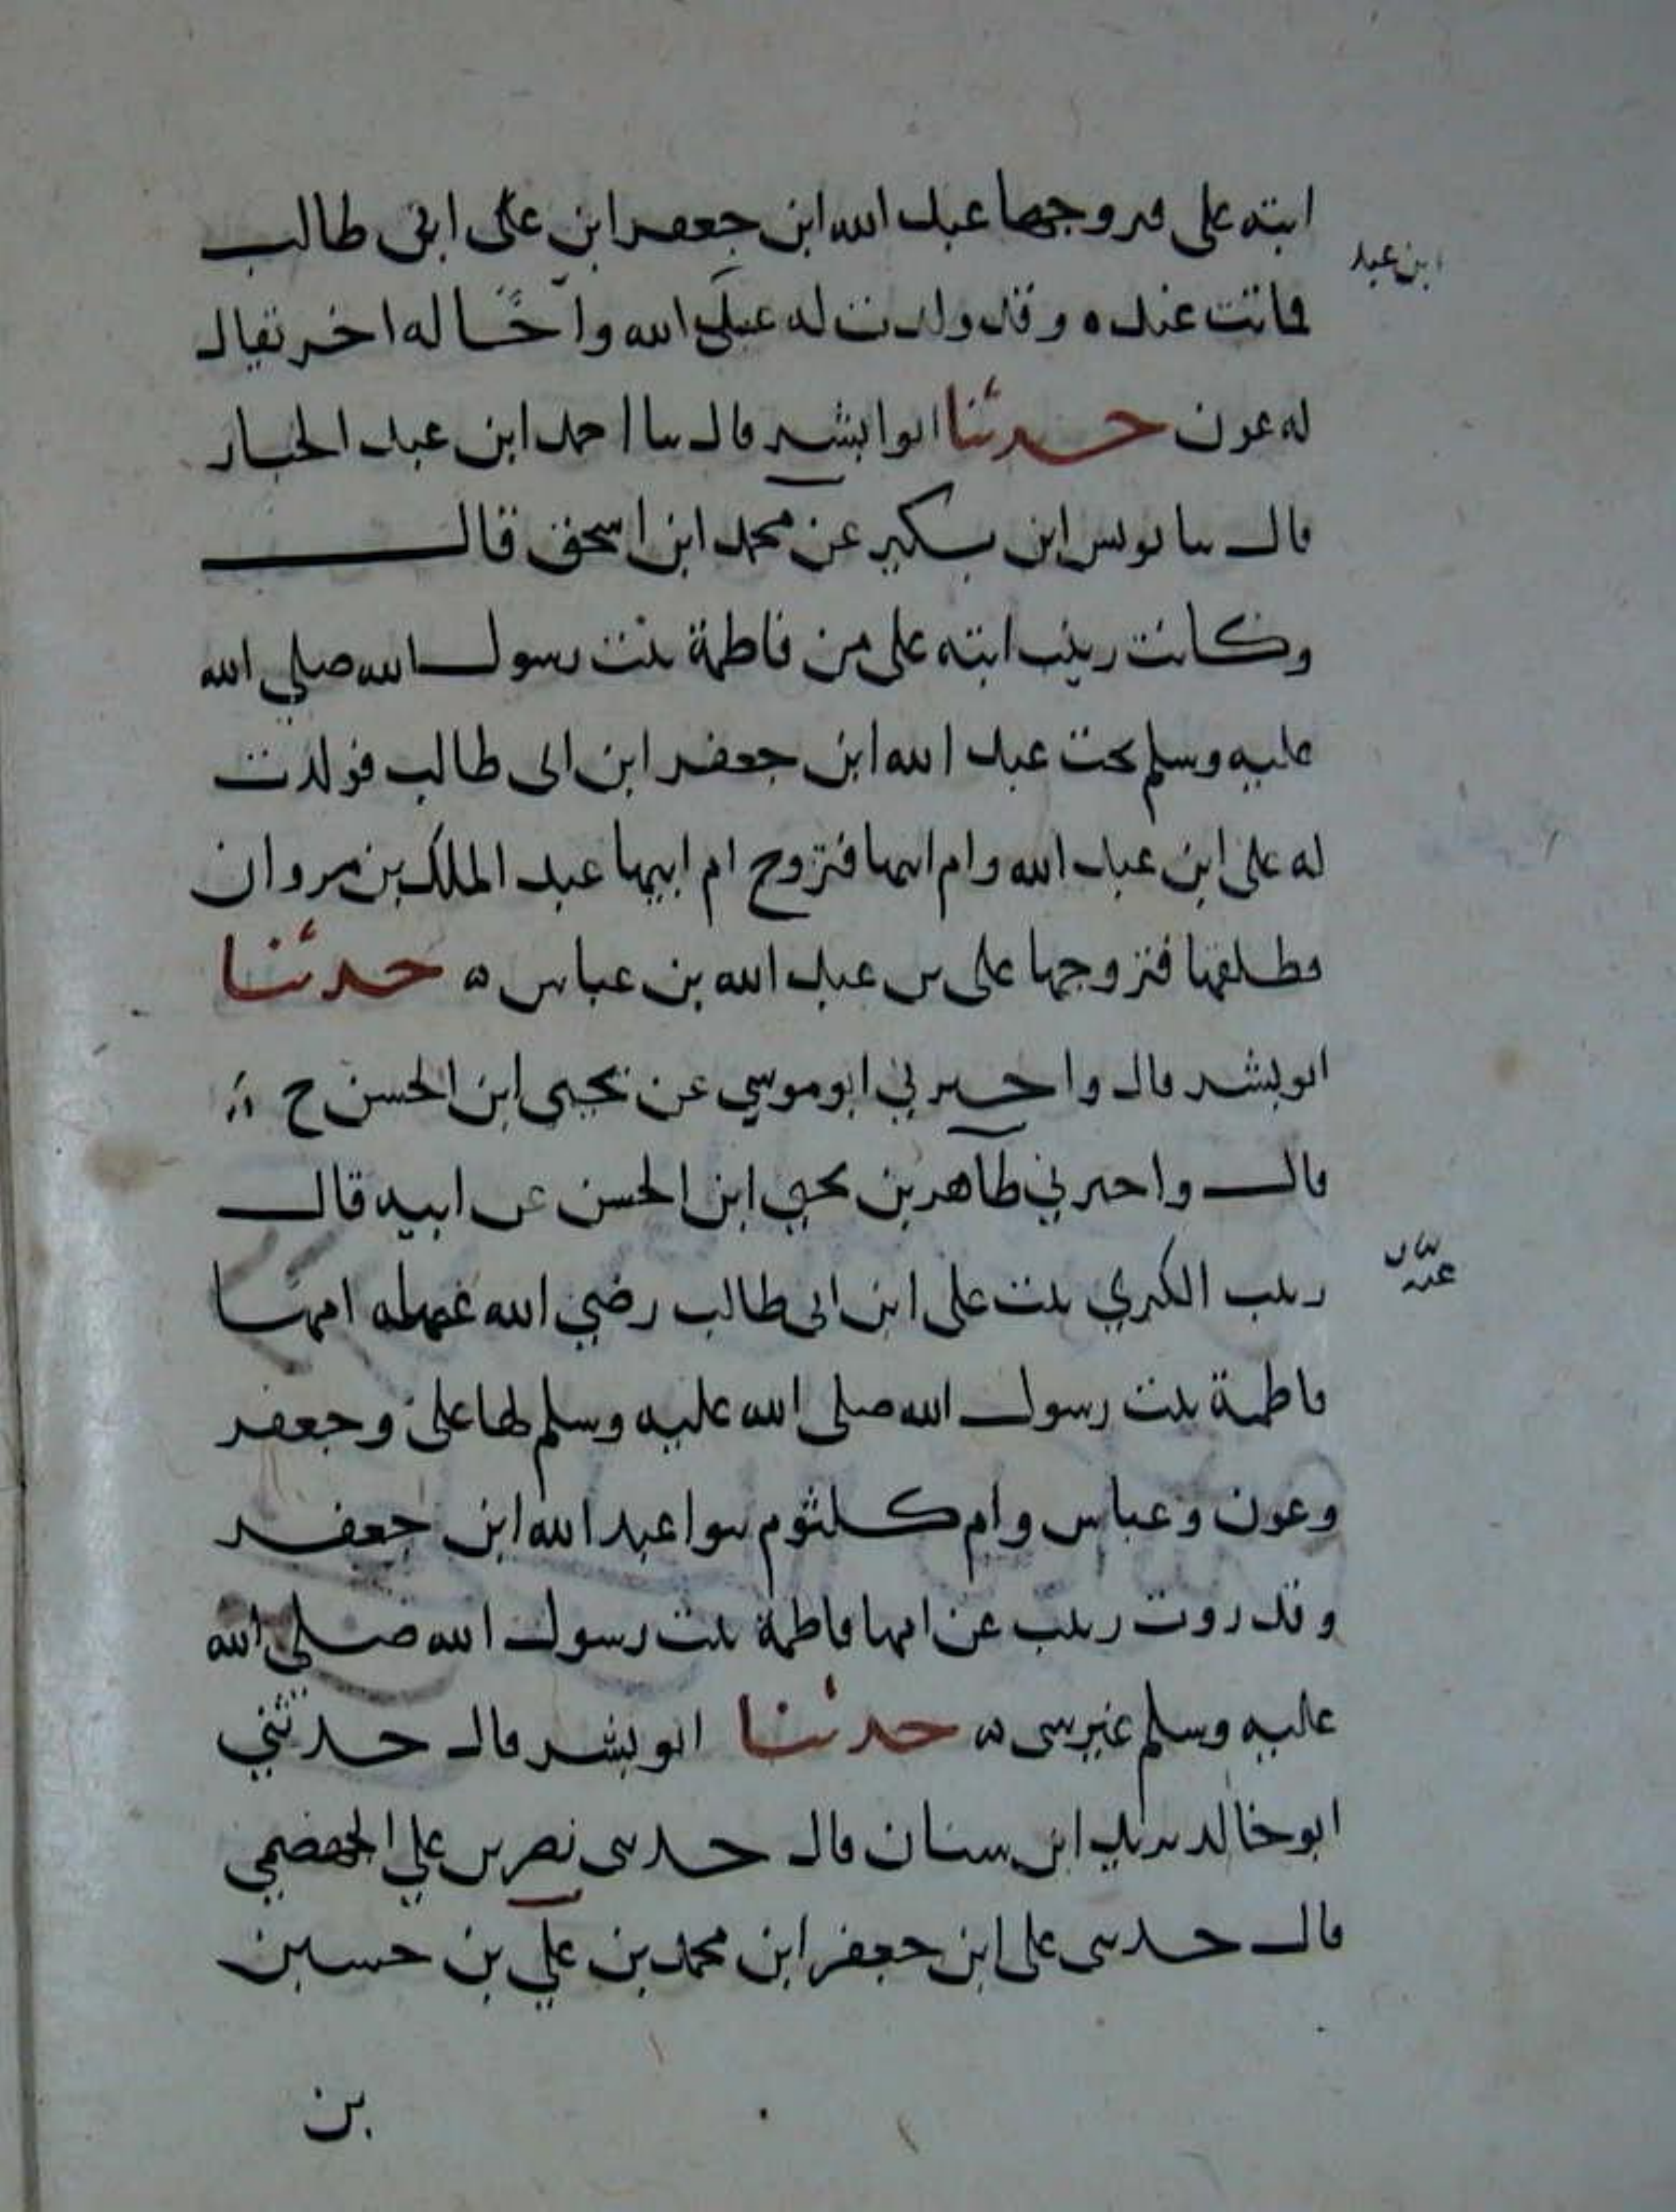 ابنته على فتزوجها عبد الله ابن جعفر ابن على ابى طالب
ابن عبد
فماتت عنده وقد ولدت له على ابن عبد الله واخا له اخر يقال
له عون حدثنا ابوا بشر قال سا احمد ابن عبد الجبار
قال سا يونس ابن بكير عن محمد ابن اسحق قال
وكانت زينب ابنته على من فاطمة بنت رسول الله صلى الله
عليه وسلم تحت عبد الله ابن جعفر ابن ابى طالب فولدت
له على ابن عبد الله وام ابيها فتزوج ام ابيها عبد الملك بن مروان
فطلقها فتزوجها على بن عبد الله بن عباس ه حدثنا
ابو بشر قال واخبرني ابو موسي عن يحيى ابن الحسن ح
قال واخبرني طاهر بن يحيي ابن الحسن عن ابيه قال
زينب الكبري بنت على ابن ابى طالب رضي الله امها
فاطمة بنت رسول الله صلى الله عليه وسلم لها على وجعفر
وعون وعباس وام كلثوم بنوا عبد الله ابن جعفر
وقد روت زينب عن امها فاطمة بنت رسول الله صلى الله
عليه وسلم غير شى ه حدثنا ابو بشر قال حدثني
ابو خالد يزيد ابن سنان قال حدثنى نصر بن علي الجهضمي
قال حدثنى على ابن جعفر ابن محمد بن علي بن حسين
بن